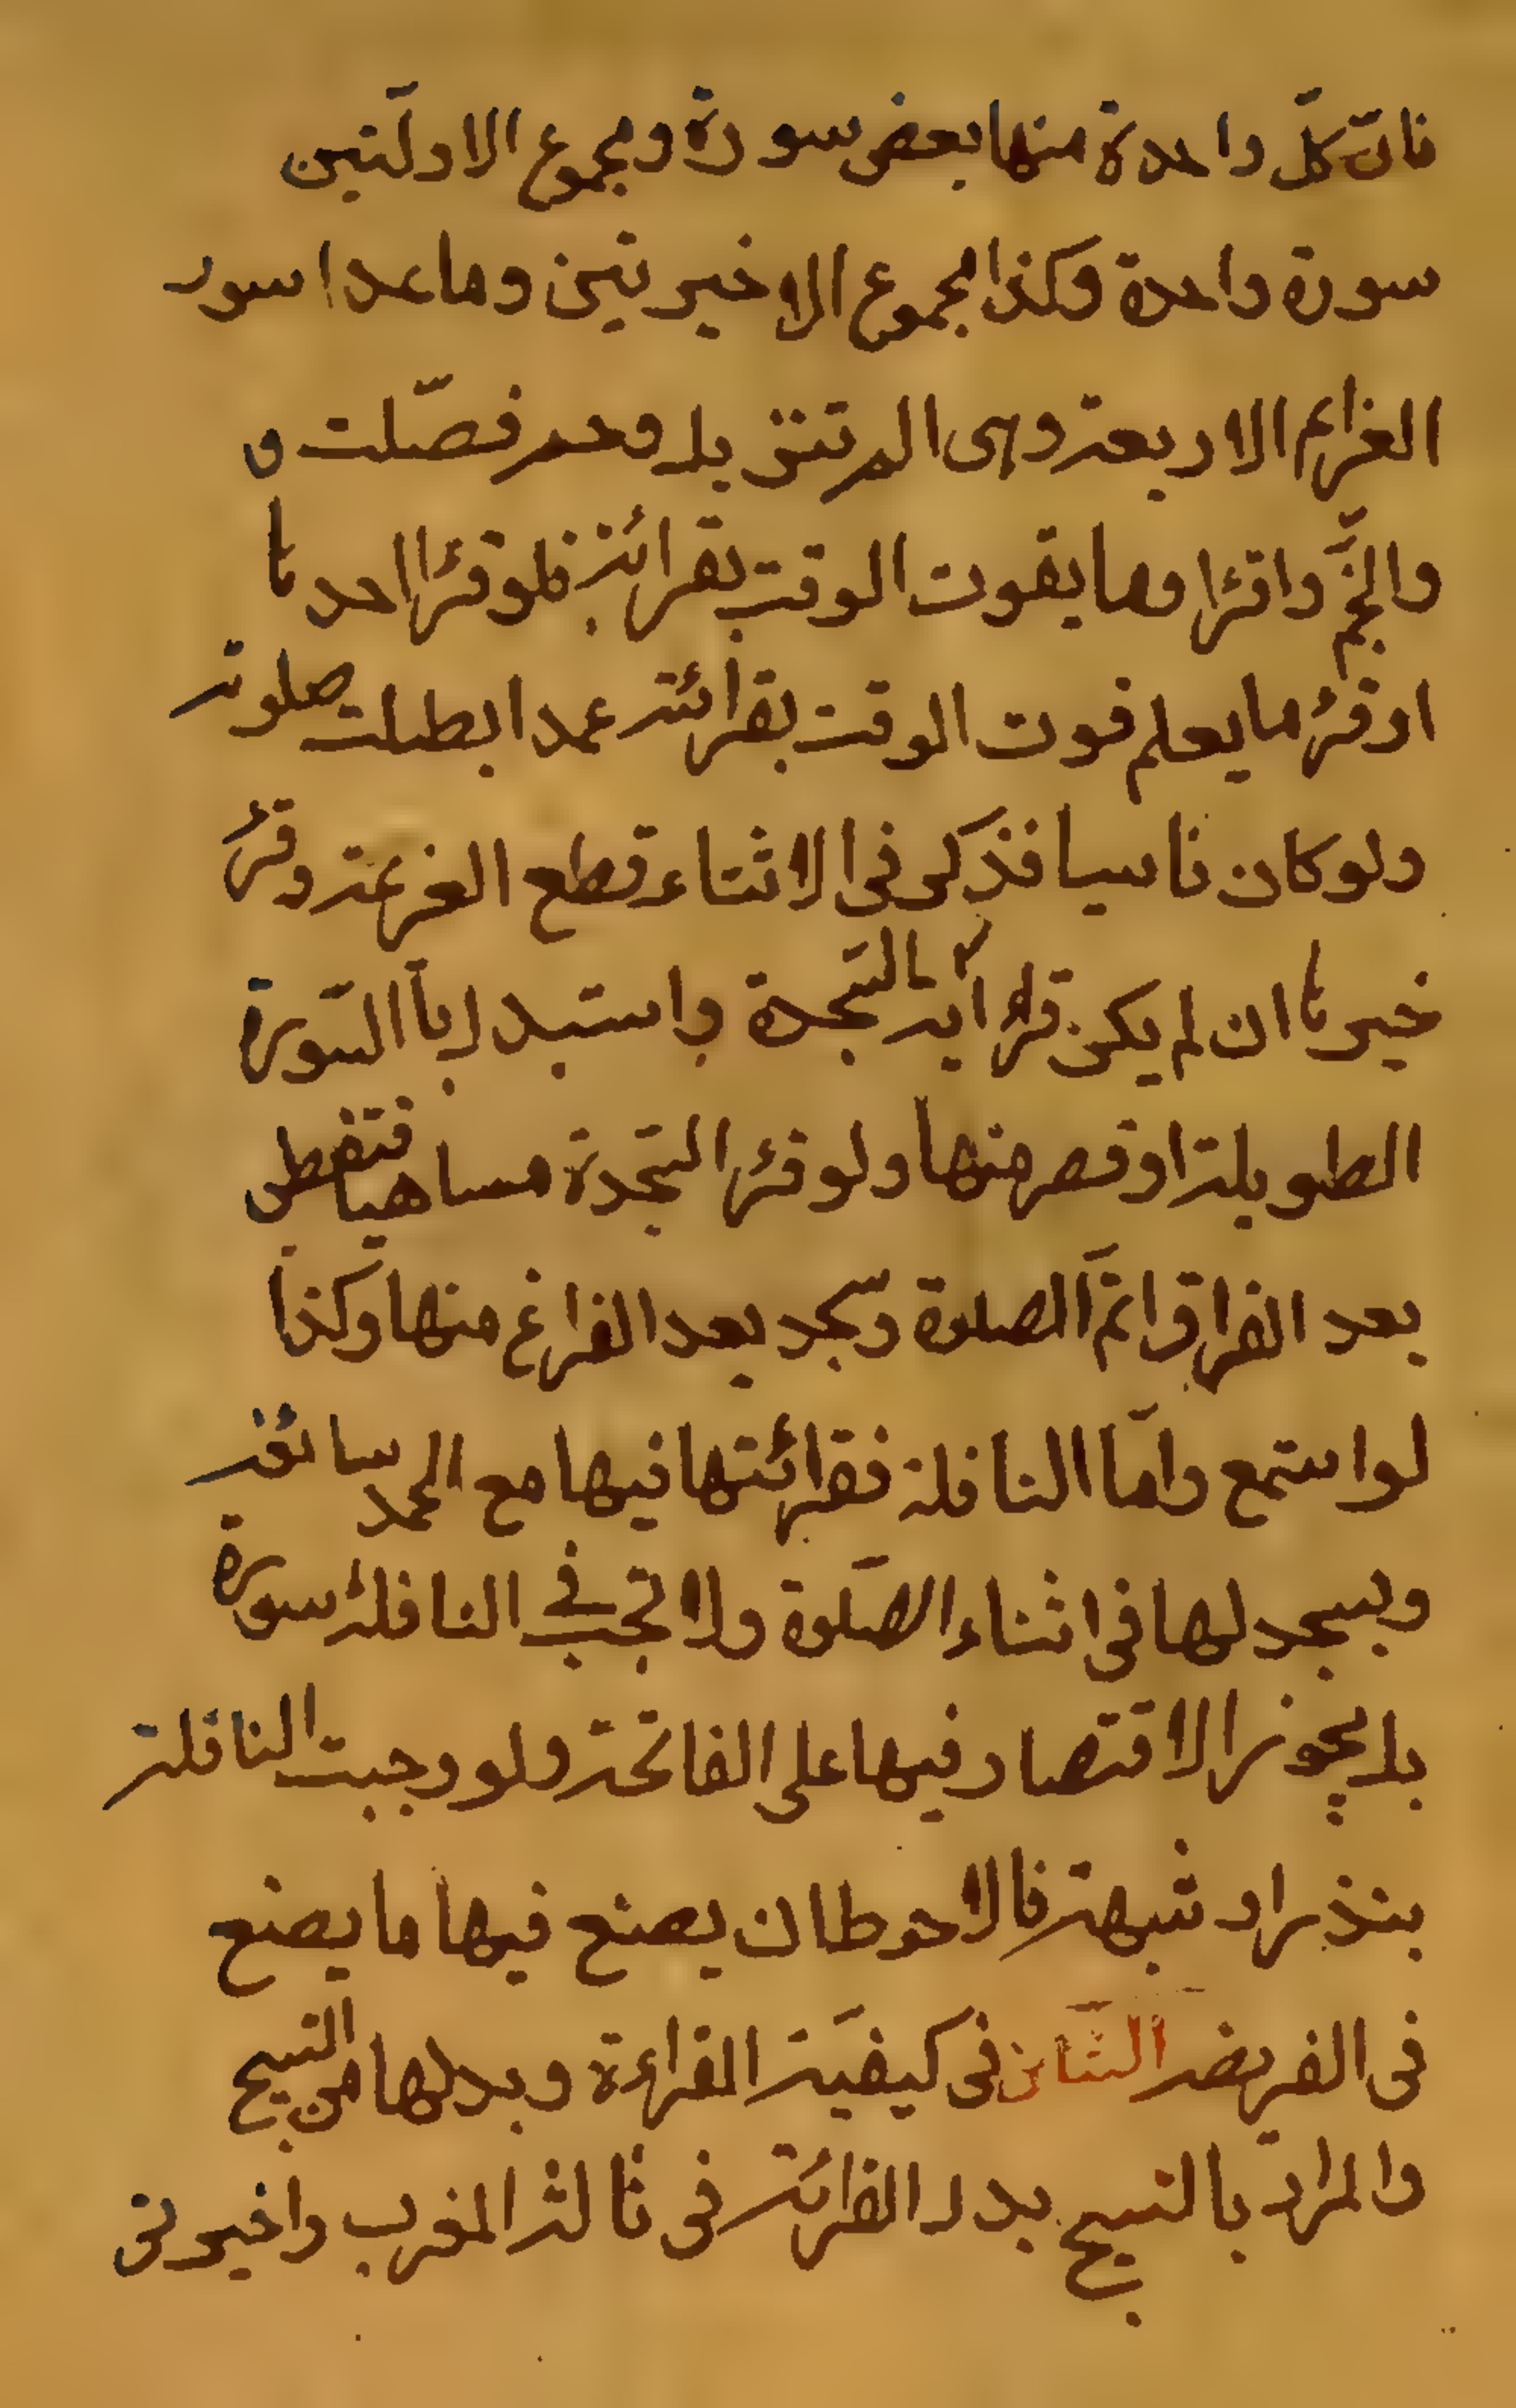 فانّ كلّ واحدة منها بعض سورة ومجموع الاولتين
سورة واحدة وكذا مجموع الاخيرتين وما عدا سور
العزائم الاربعة وهى الم تنزيل وحم فصّلت و
والنّجم واقرٱ وما يفوت الوقت بقرائته فلو قرٱ احدها
او قرٱ ما يعلم فوت الوقت بقرائته عمدا بطلت صلوته
ولو كان ناسيا فذكر فى الاثناء قطع العزيمة وقرٱ
غيرها ان لم يكن قرٱ آية السّجدة واستبدل با السّورة
الطويلة اوقصر منها ولو قرٱ السّجدة ساهيا
بعد الفراق واتمّ الصلوة وسجد بعد الفراغ منها وكذا
لو استمع وامّا النافلة فقرائتها فيها مع الحمد سائغة
ويسجد لها فى اثناء الصّلوة ولا تجب فى النافلة سورة
بل يجوز الاقتصار فيها على الفاتحة ولو وجبت النافلة
بنذر او شبهة فالاحوط ان يصنع فيها ما يصنع
فى الفريضة الثّانى فى كيفيّة القراءة وبدلها من التسبيح
والمراد بالتسبيح بدل القرائة فى ثالثة المغرب واخيرتى